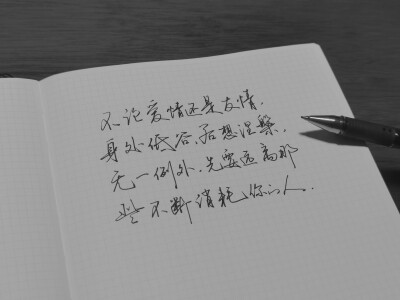 不论爱情还是友情.
身处低谷,若想涅槃,
无一例外,先要远离那
些不断消耗你的人.